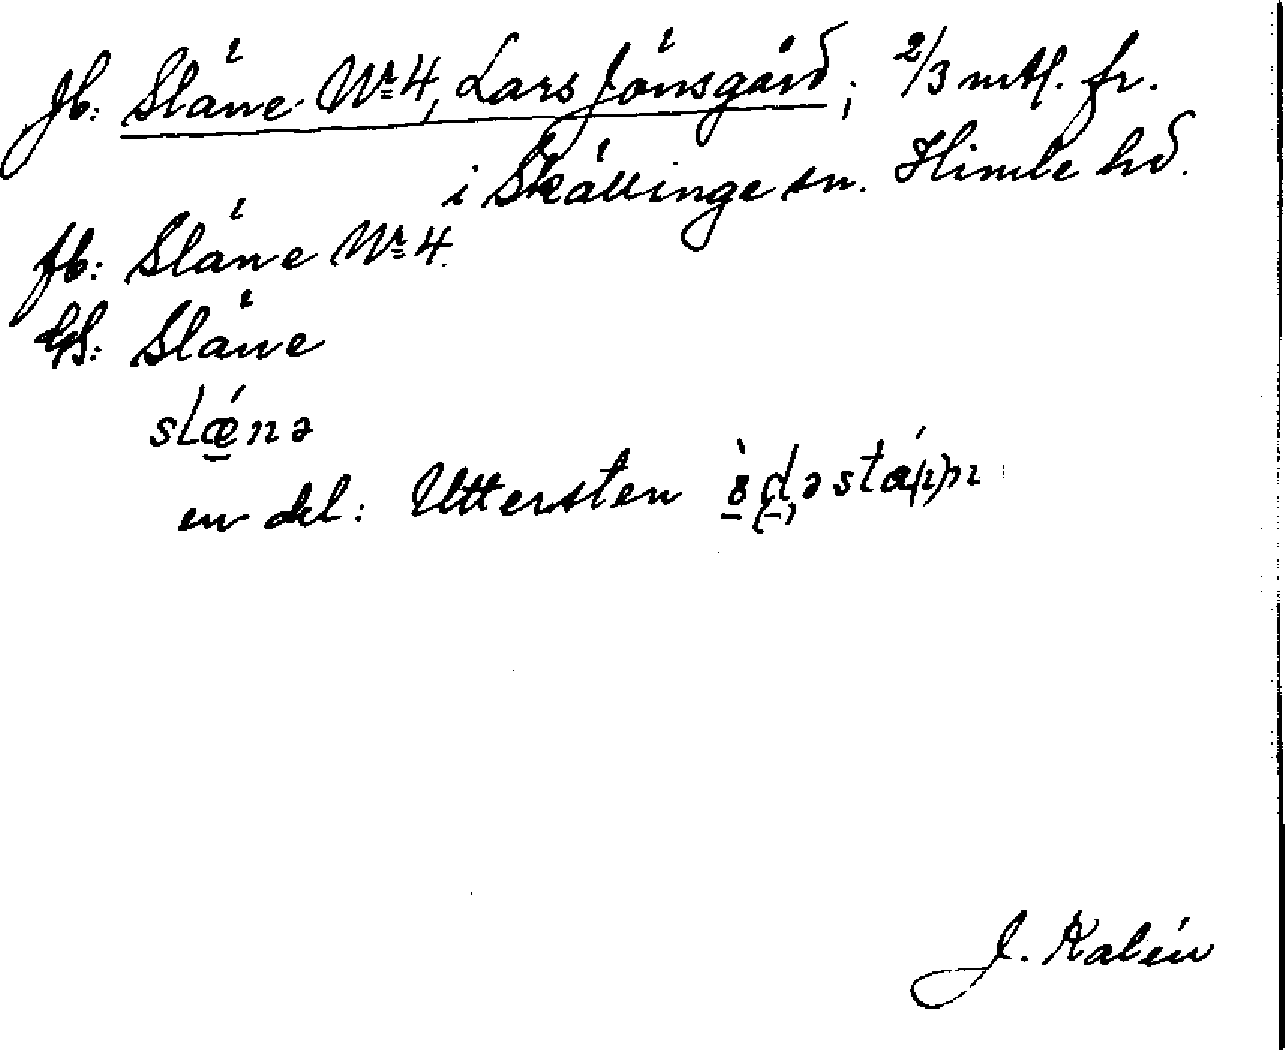 Jb: Släne No 4, Lars Jönsgård; 2/3 mtl. fr.
i Skällinge sn. Himle hd.
fb: Släne No 4.
GS: Släne
slǽnə
en del: Uttersten
J. Kalén